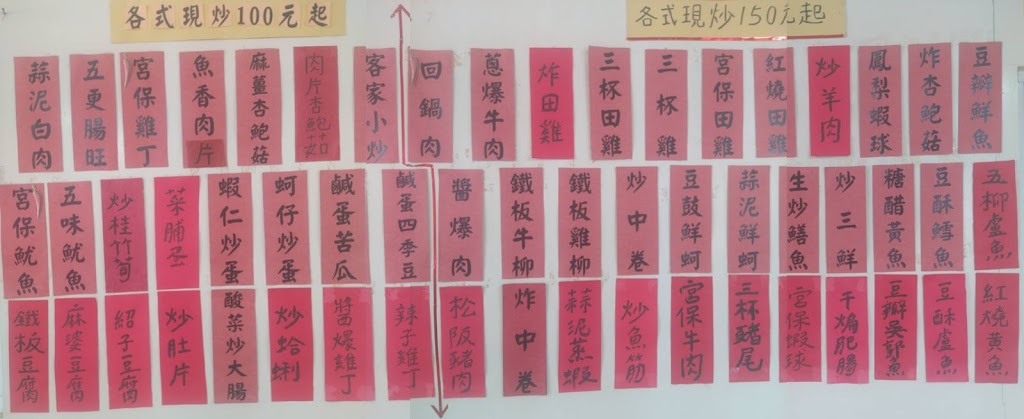 各式現炒100元起
各式現炒150元起
蒜泥白肉
五更腸旺
宮保雞丁
魚香肉片
麻薑杏鮑菇
肉片杏鮑菇
客家小炒
回鍋肉
蔥爆牛肉
炸田雞
三杯田雞
三杯雞
宮保田雞
紅燒田雞
炒羊肉
鳳梨蝦球
炸杏鮑菇
豆瓣鮮魚
宮保魷魚
五味魷魚
炒桂竹筍
菜脯蛋
蝦仁炒蛋
蚵仔炒蛋
鹹蛋苦瓜
鹹蛋四季豆
醬爆肉
鐵板牛柳
鐵板雞柳
炒中卷
豆鼓鮮蚵
蒜泥鮮蚵
生炒鱔魚
炒三鮮
糖醋黃魚
豆酥鱈魚
五柳盧魚
鐵板豆腐
麻婆豆腐
紹子豆腐
炒肚片
酸菜炒大腸
炒蛤蜊
醬爆雞丁
辣子雞丁
松阪豬肉
炸中卷
蒜泥蒸蝦
炒魚筋
宮保牛肉
三杯豬尾
宮保蝦球
干煸肥腸
豆瓣吳郭魚
豆酥盧魚
紅燒黃魚